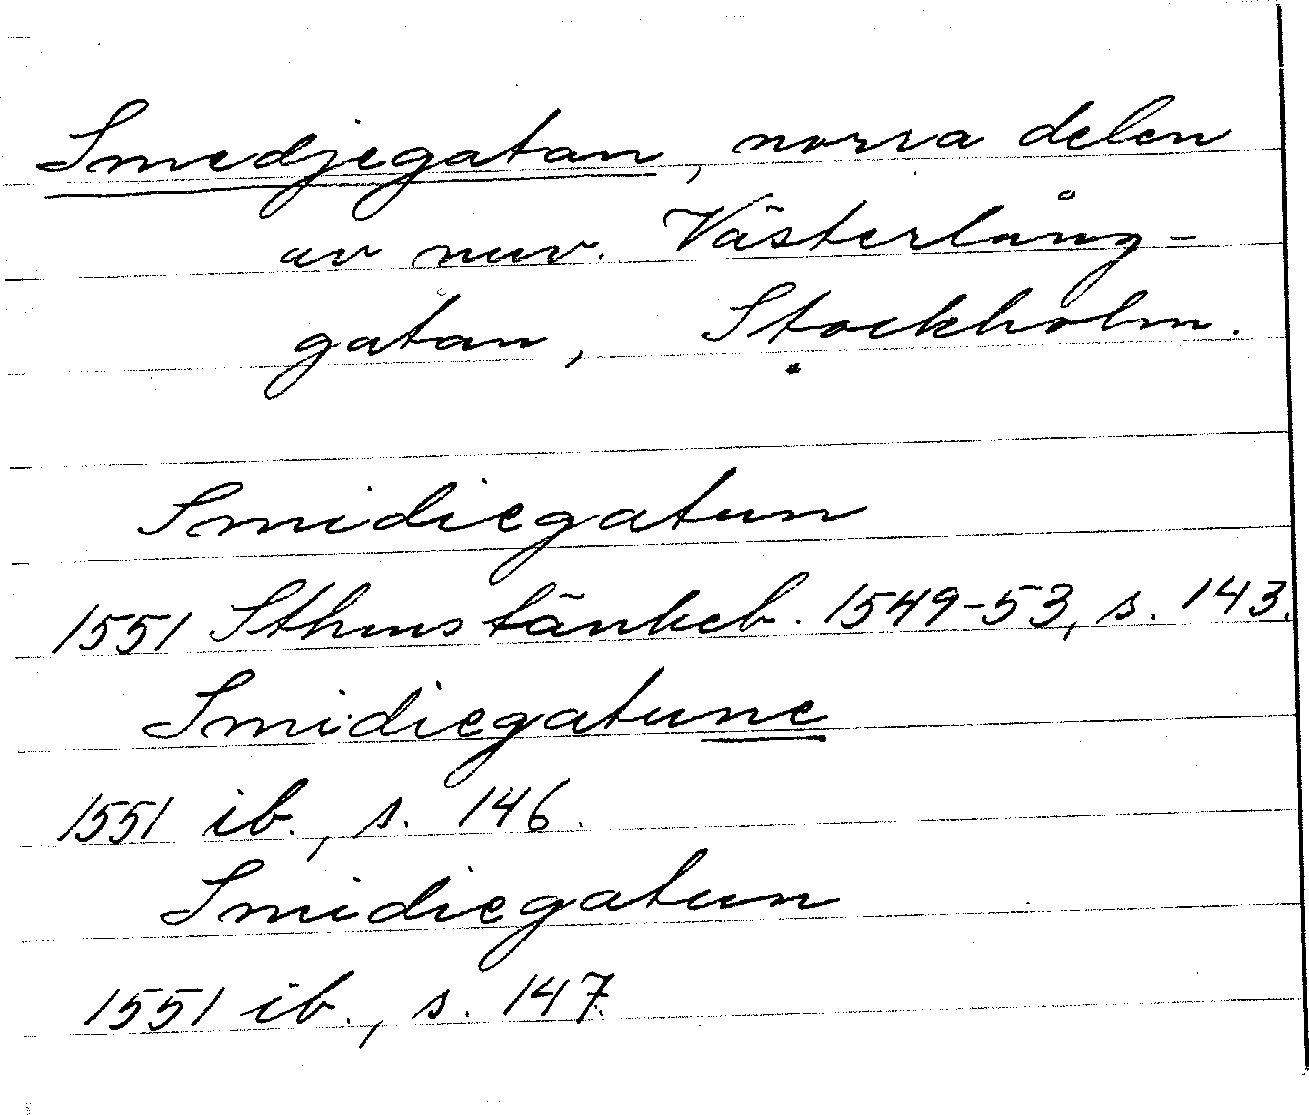 Smedjegatan, norra delen
av nuv. Västerlång-
gatan, Stockholm.
Smidiegatun
1551 Sthms tänkeb. 1549-53, s. 143.
Smidiegatune
1551 ib., s. 146.
Smidiegatun
1551 ib., s. 147.